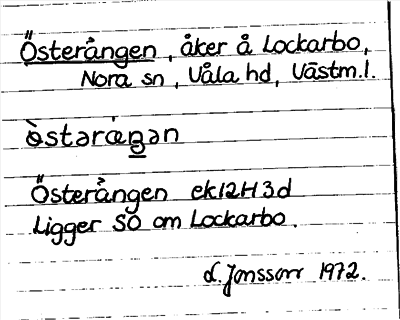 Österången, åker å Lockarbo,
Nora sn, Våla hd, Västm.l.
Österången ek12H3d
Ligger SO om Lockarbo.
L. Jonsson 1972.